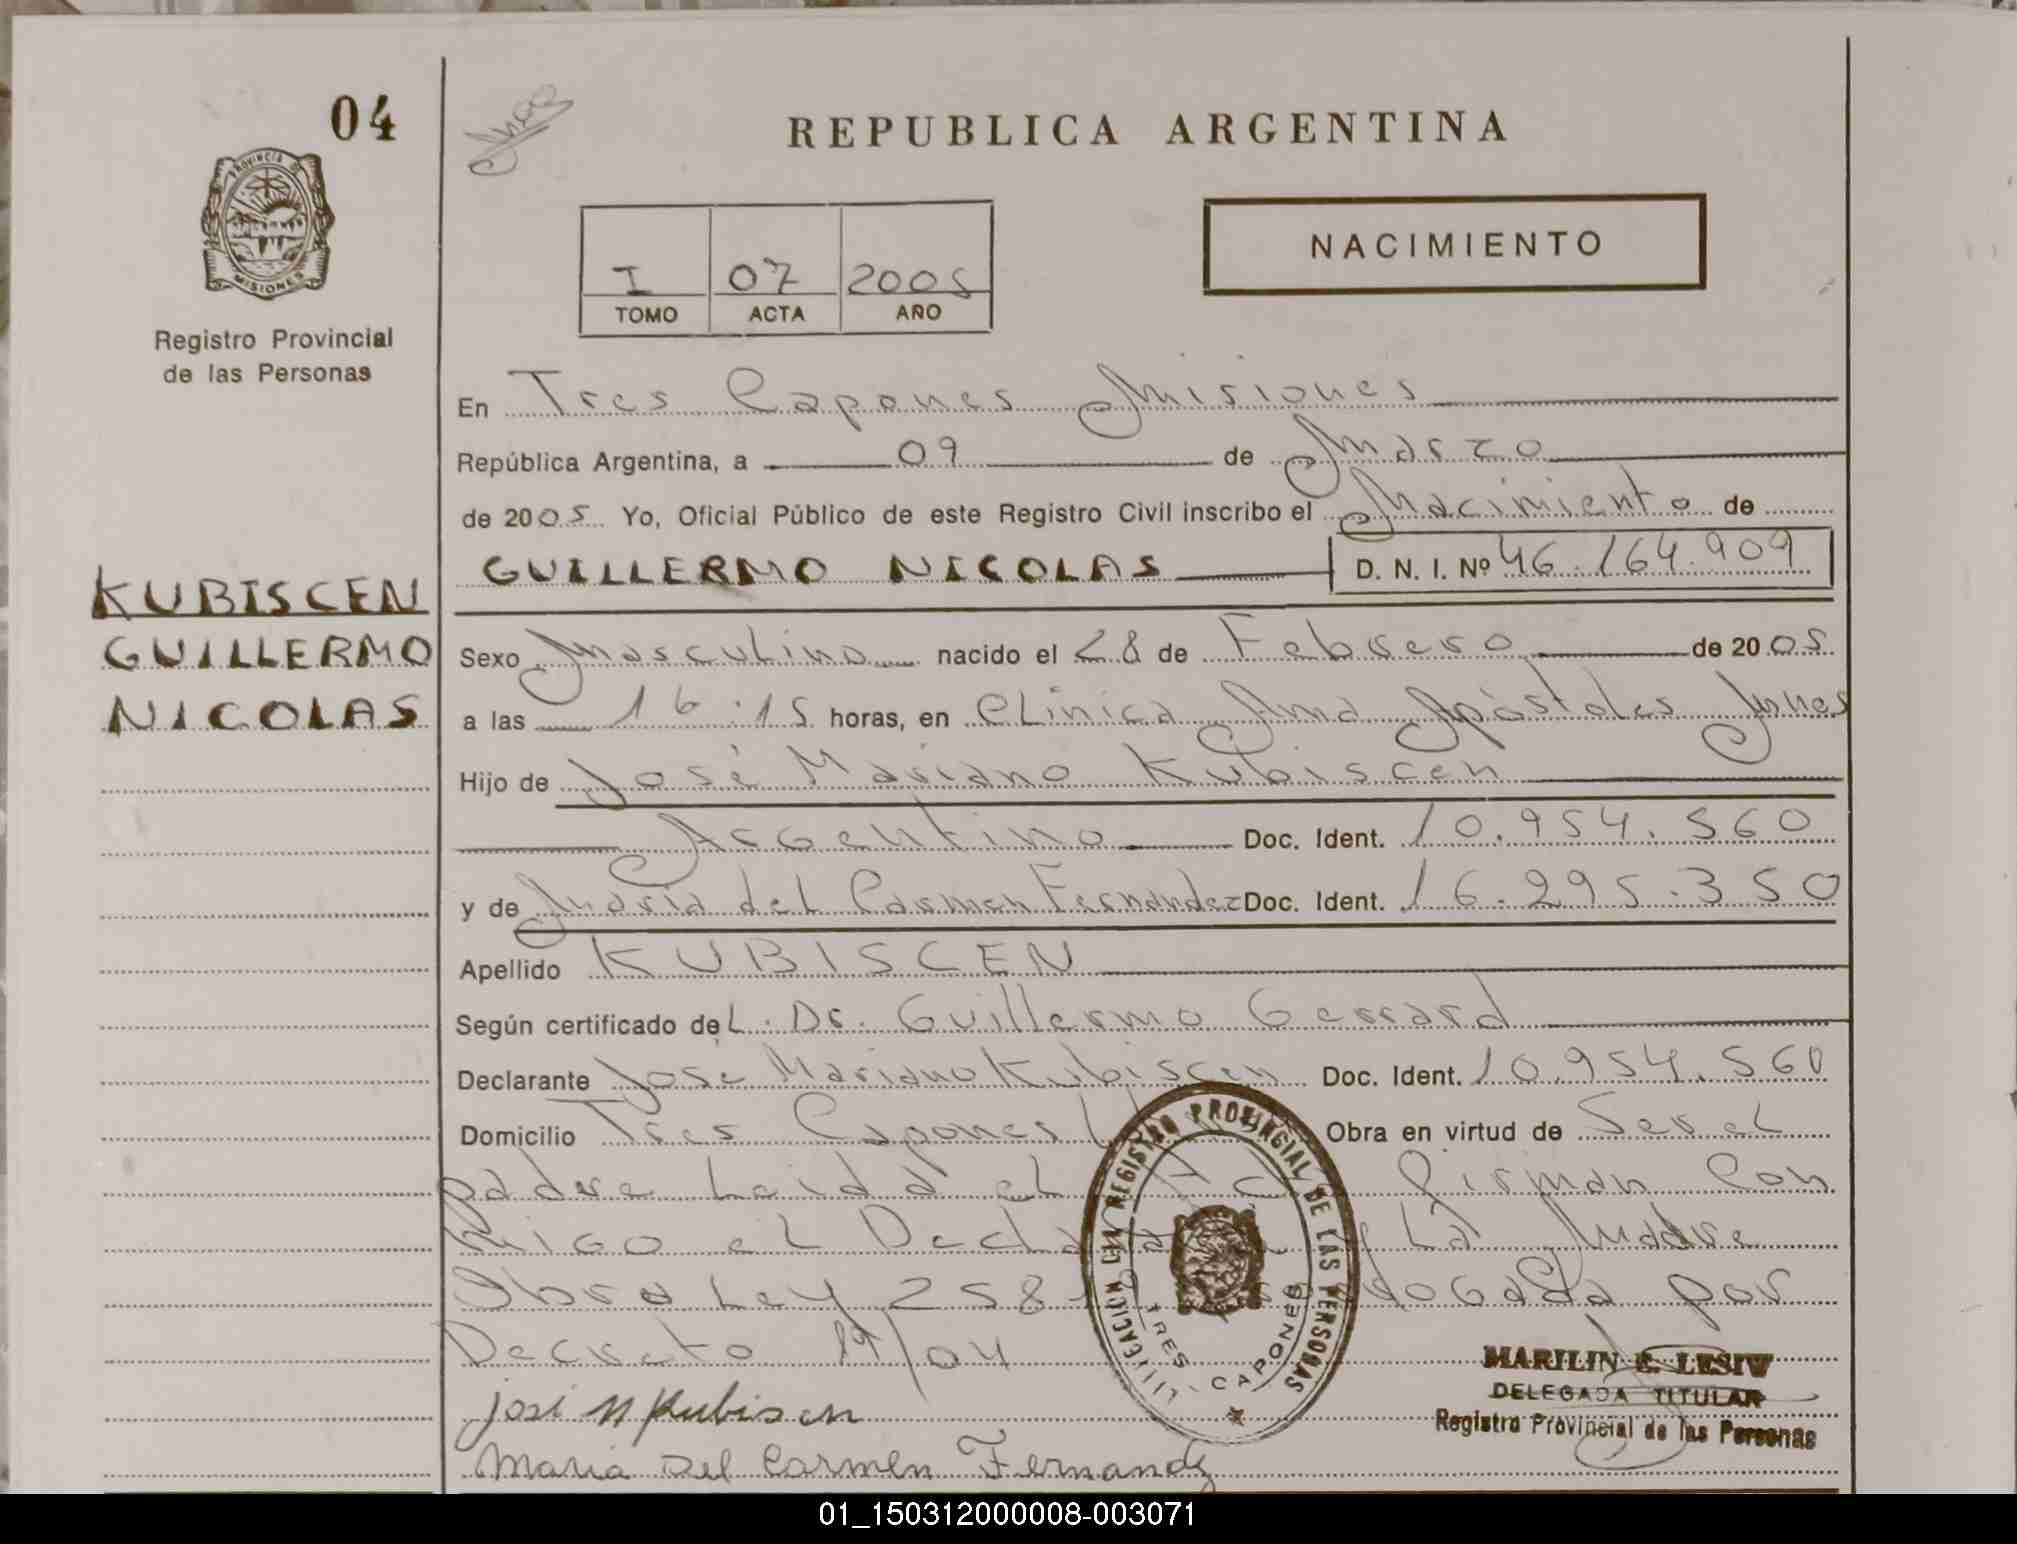 04
PROVINCIA DE
MISIONES
Registro Provincial
de las Personas
REPUBLICA ARGENTINA
I 07 2005
TOMO ACTA AÑO
NACIMIENTO
En Tres Capones Misiones
República Argentina, a 09 de Marzo
de 2005 Yo, Oficial Público de este Registro Civil inscribo el Nacimiento de
GUILLERMO NICOLAS D. N. I. Nº 46.164.909
KUBISCEN
GUILLERMO
NICOLAS
Sexo Masculino nacido el 28 de Febrero de 2005
a las 16:15 horas, en Clinica Ama Apóstoles Mnes
Hijo de José Mariano Kubiscen
Argentino Doc. Ident. 10.954.560
y de María del Carmen Fernandez Doc. Ident. 16.295.350
Apellido KUBISCEN
Según certificado del Dr. Guillermo Gerrard
Declarante José Mariano Kubiscen Doc. Ident. 10.954.560
Domicilio Tres Capones Obra en virtud de Ser el
padre Leida el firman Con
migo el La Madre
Obra Ley por
Decreto 19/04
josé M Kubiscen
Maria Del Carmen Fernandz
REGISTRO PROVINCIAL DE LAS PERSONAS
TRES CAPONES
MARILIN E. LESIW
DELEGADA TITULAR
Registro Provincial de las Personas
01_150312000008-003071